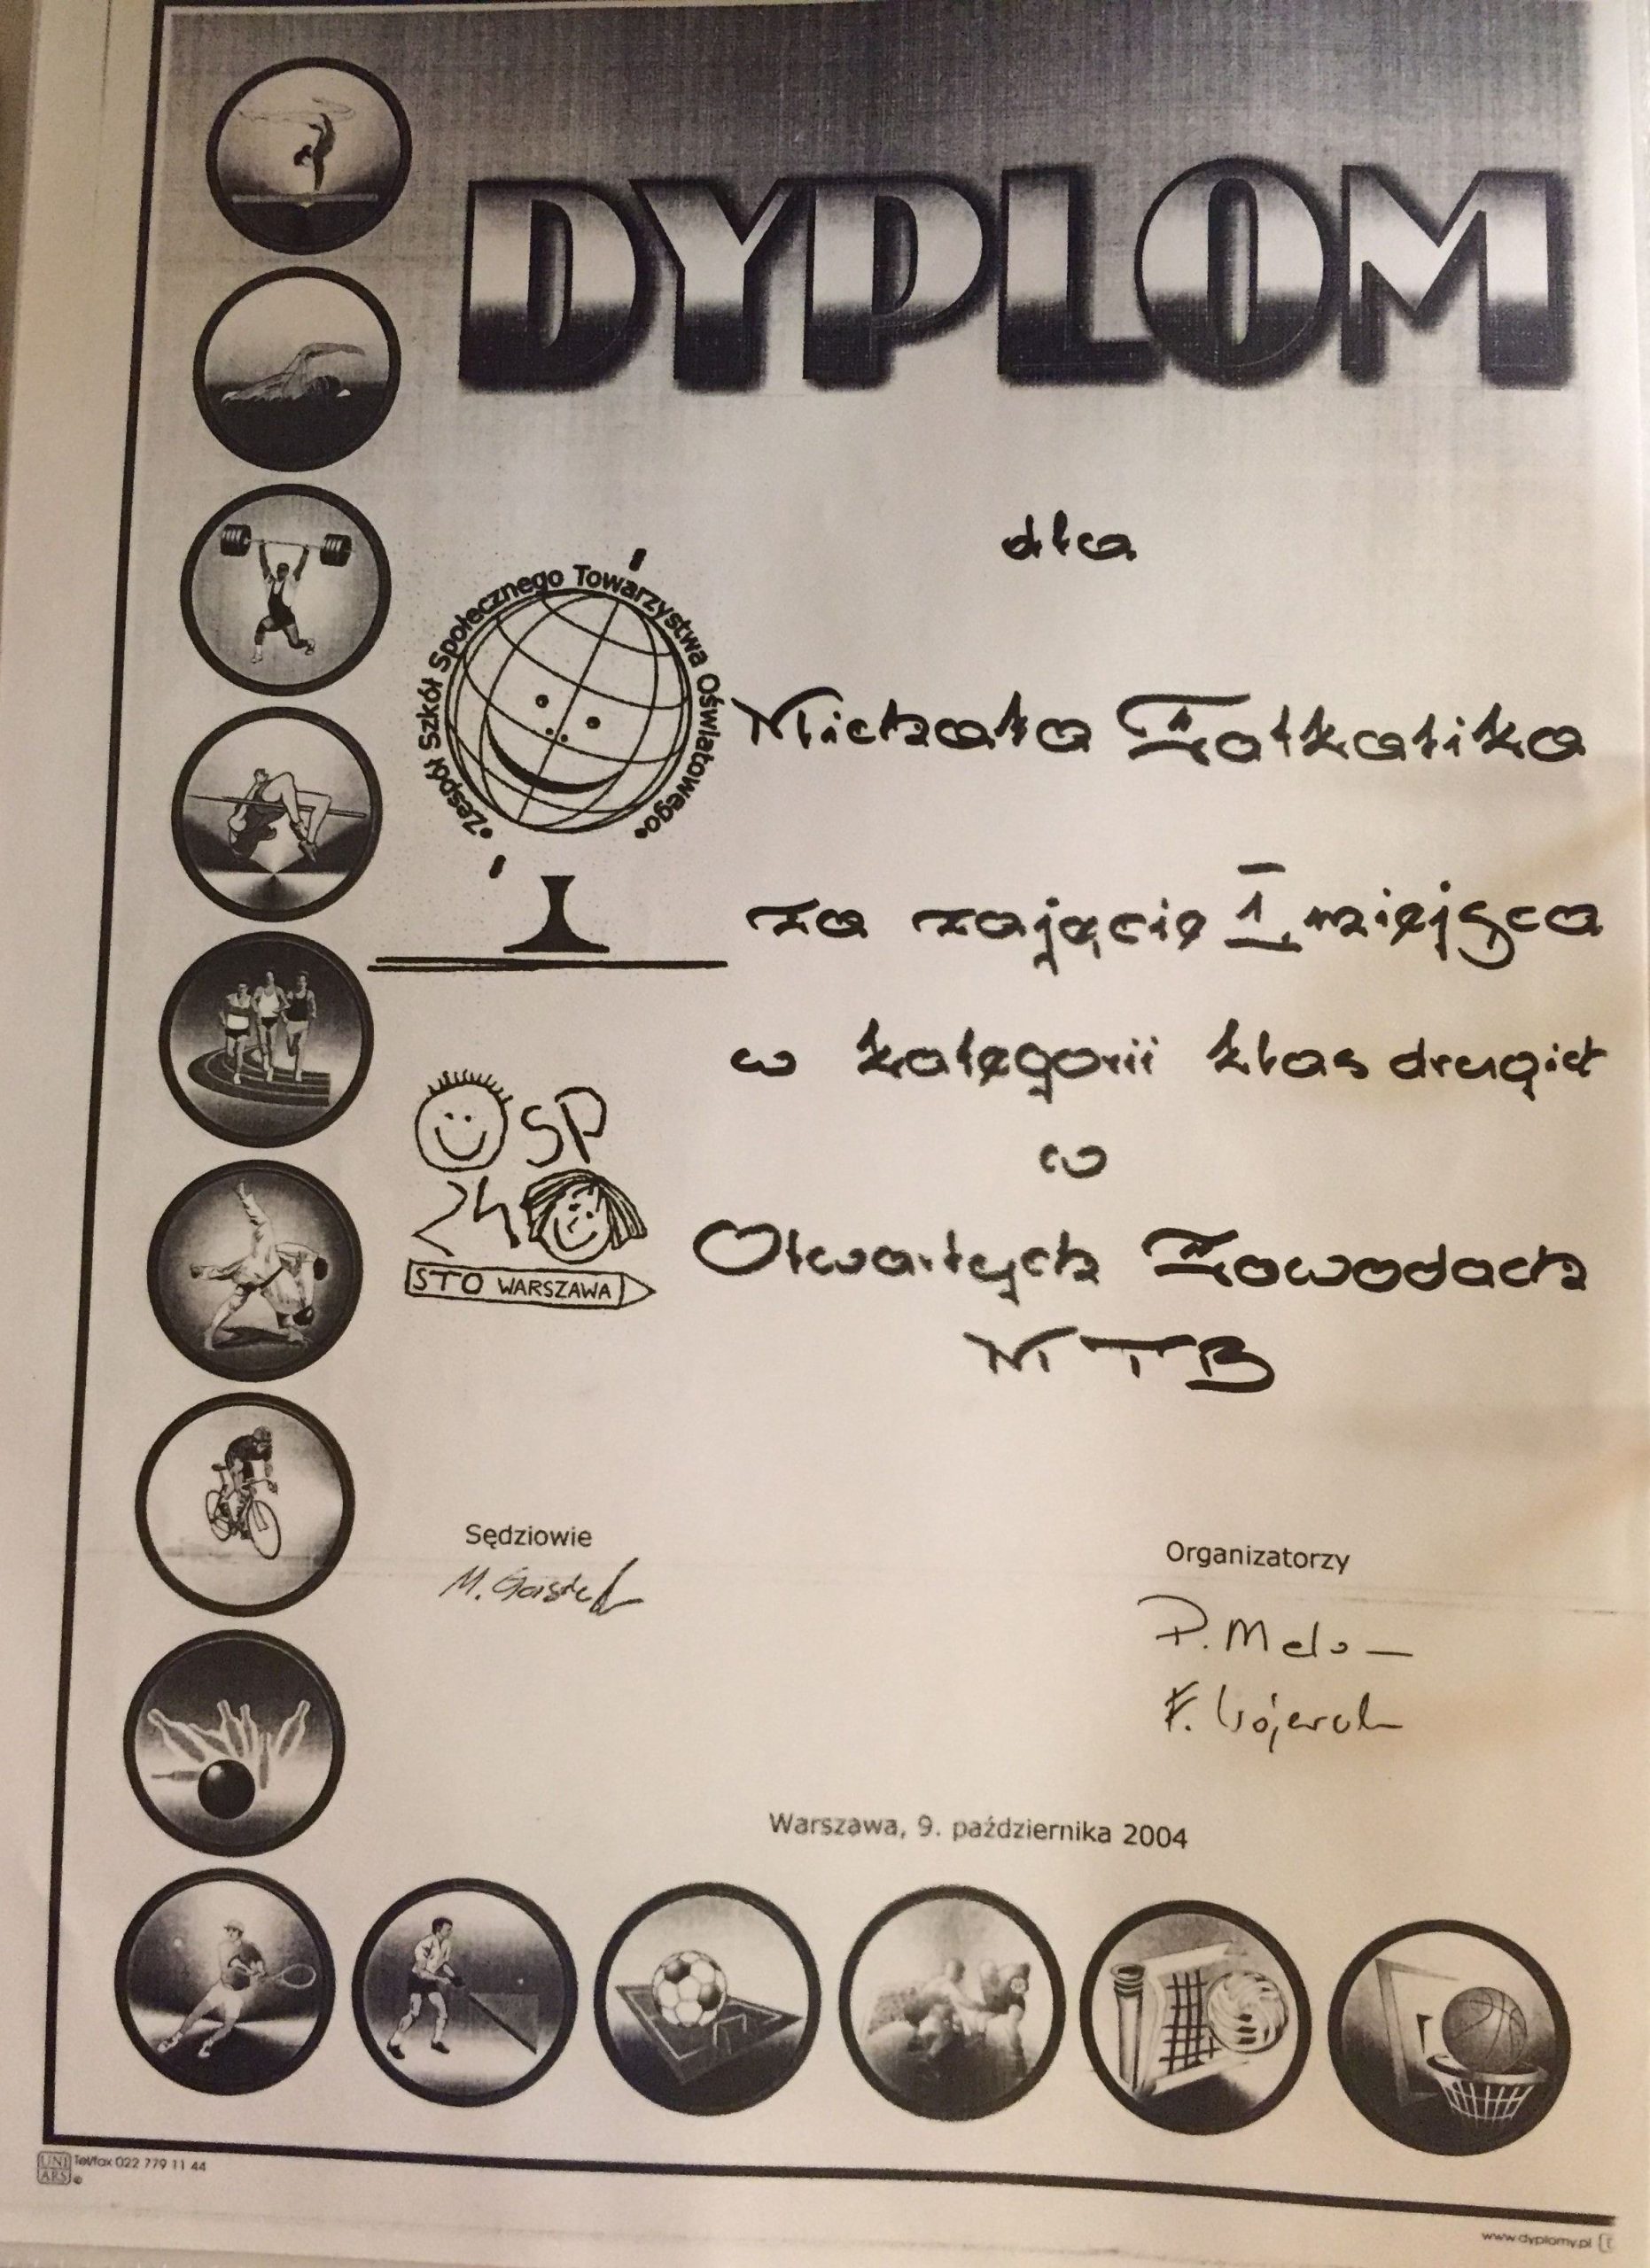 DYPLOM
dla
•Zespół Szkół Społecznego Towarzystwa Oświatowego•
Michała
za zajęcie I miejsca
w kategorii klas drugich
w
Otwartych Zawodach
MTB
SP
24
STO WARSZAWA
Sędziowie
Organizatorzy
M.
P.
F.
Warszawa, 9. października 2004
UNI
ARS
Tel/fax 022 779 11 44
www.dyplomy.pl